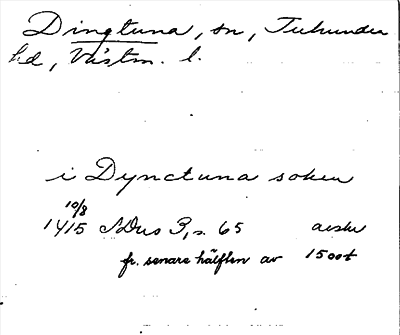 Dingtuna, sn, Tuhundra
hd, Västm. l.
i Dynctuna soken
10/8
1415 SDns 3, s. 65 avskr
fr. senare hälften av 1500t